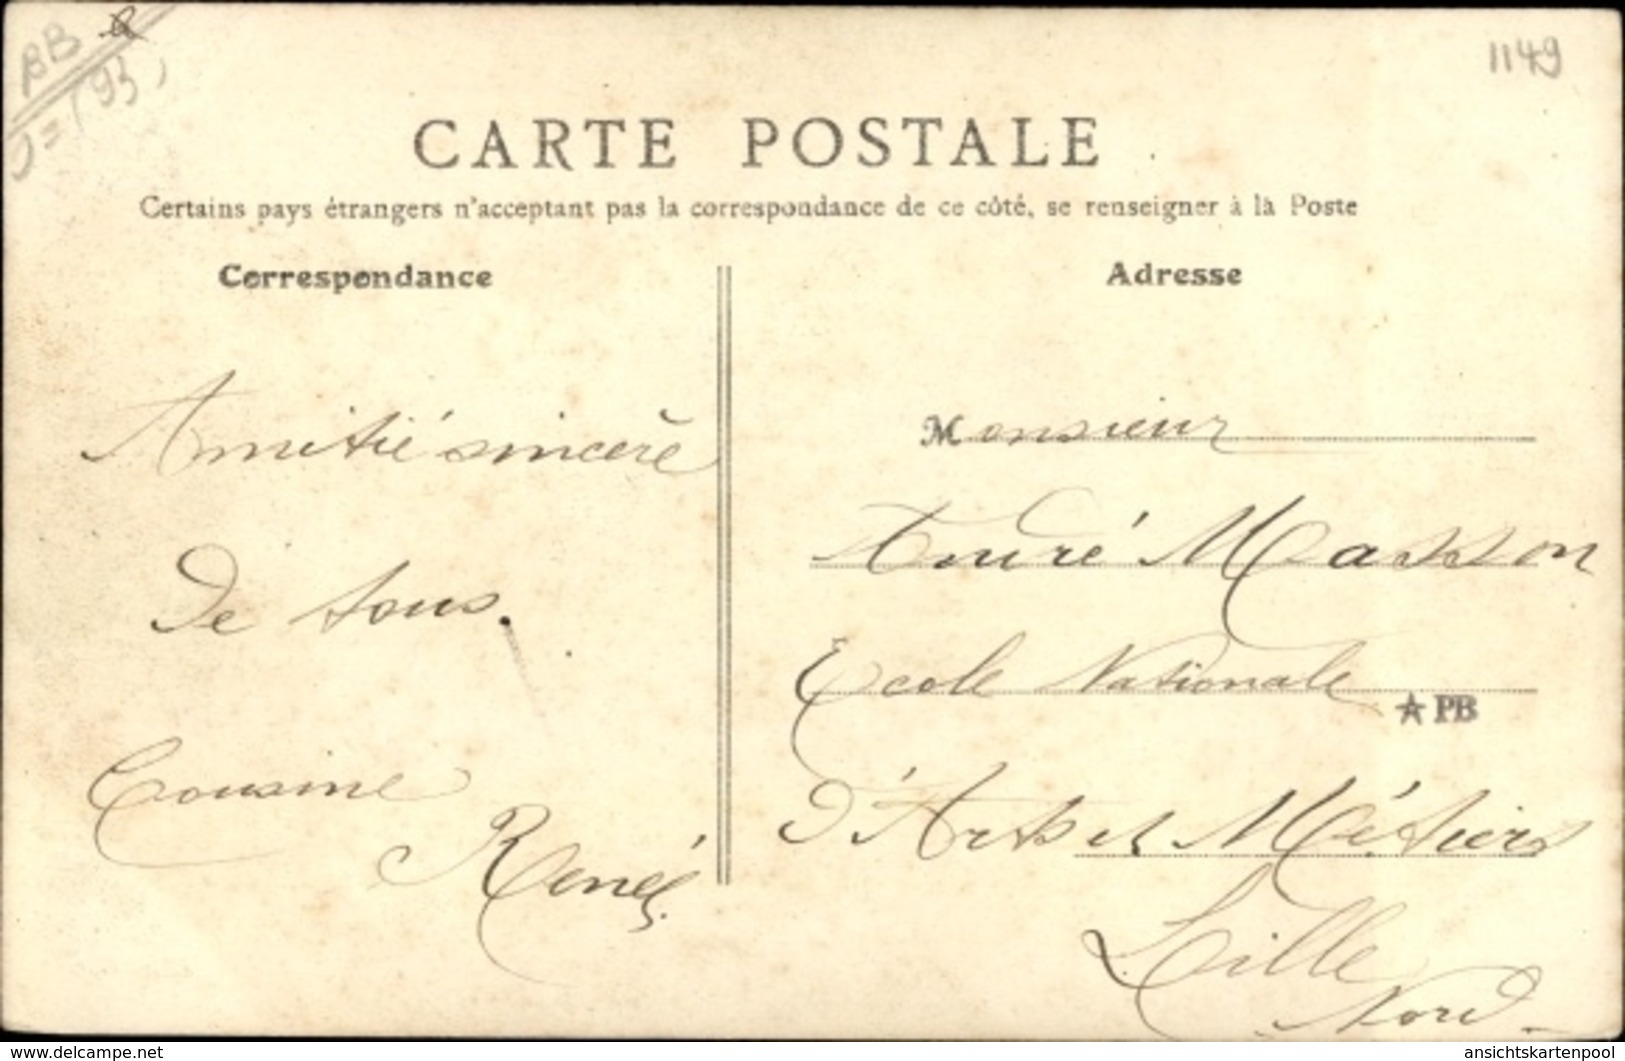 BB
1149
CARTE POSTALE
Certains pays étrangers n'acceptant pas la correspondance de ce côté, se renseigner à là Poste
Correspondance
Adresse
Amitié sincère
De tous.
Cousine
René
Monsieur
André Masson
Ecole Nationale
PB
d'Arts et Métiers
Lille
Nord
www.delcampe.net
ansichtskartenpool